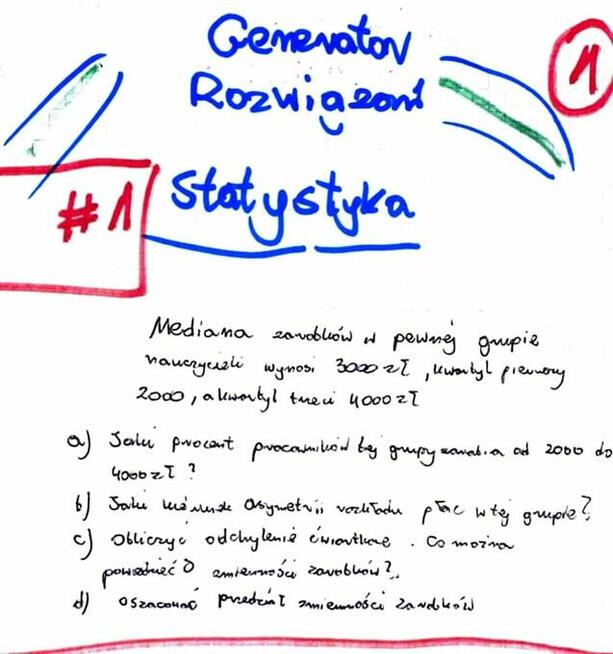 Generator
Rozwiązań
1
#1
Statystyka
Mediana zarobków w pewnej grupie
nauczycieli wynosi 3000 zł, kwartyl pierwszy
2000, a kwartyl trzeci 4000 zł
a) Jaki procent pracowników tej grupy zarabia od 2000 do
4000 zł?
b) Jaki kierunek asymetrii rozkładu płac w tej grupie?
c) Obliczyć odchylenie ćwiartkowe. Co można
powiedzieć o zmienności zarobków?
d) oszacować przedział zmienności zarobków